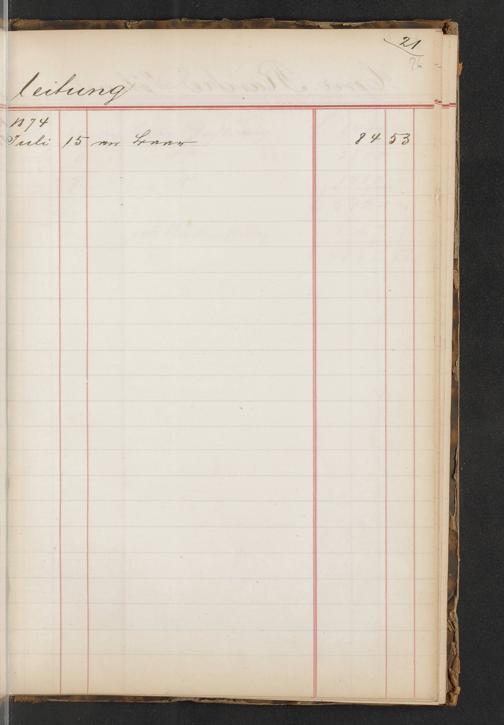 21
76
leitung
1874
Juli 15 an 84 53